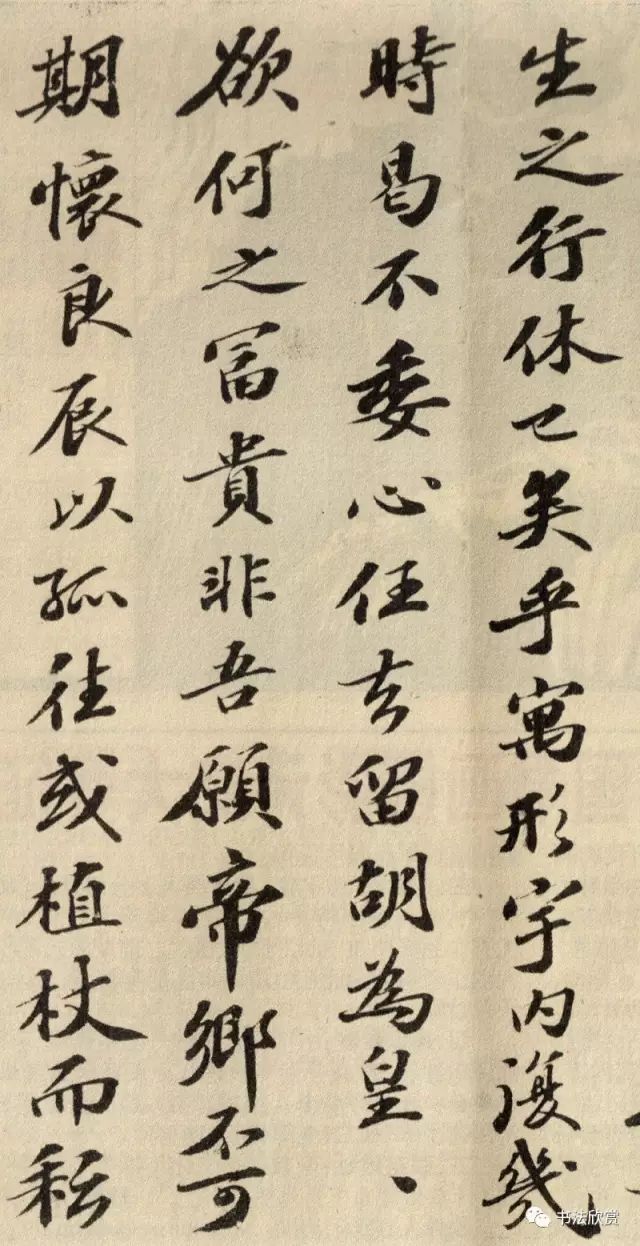 生之行休已矣乎寓形宇内復幾
時曷不委心任去留胡為皇、
欲何之富貴非吾願帝鄉不可
期懷良辰以孤往或植杖而耘
书法欣赏